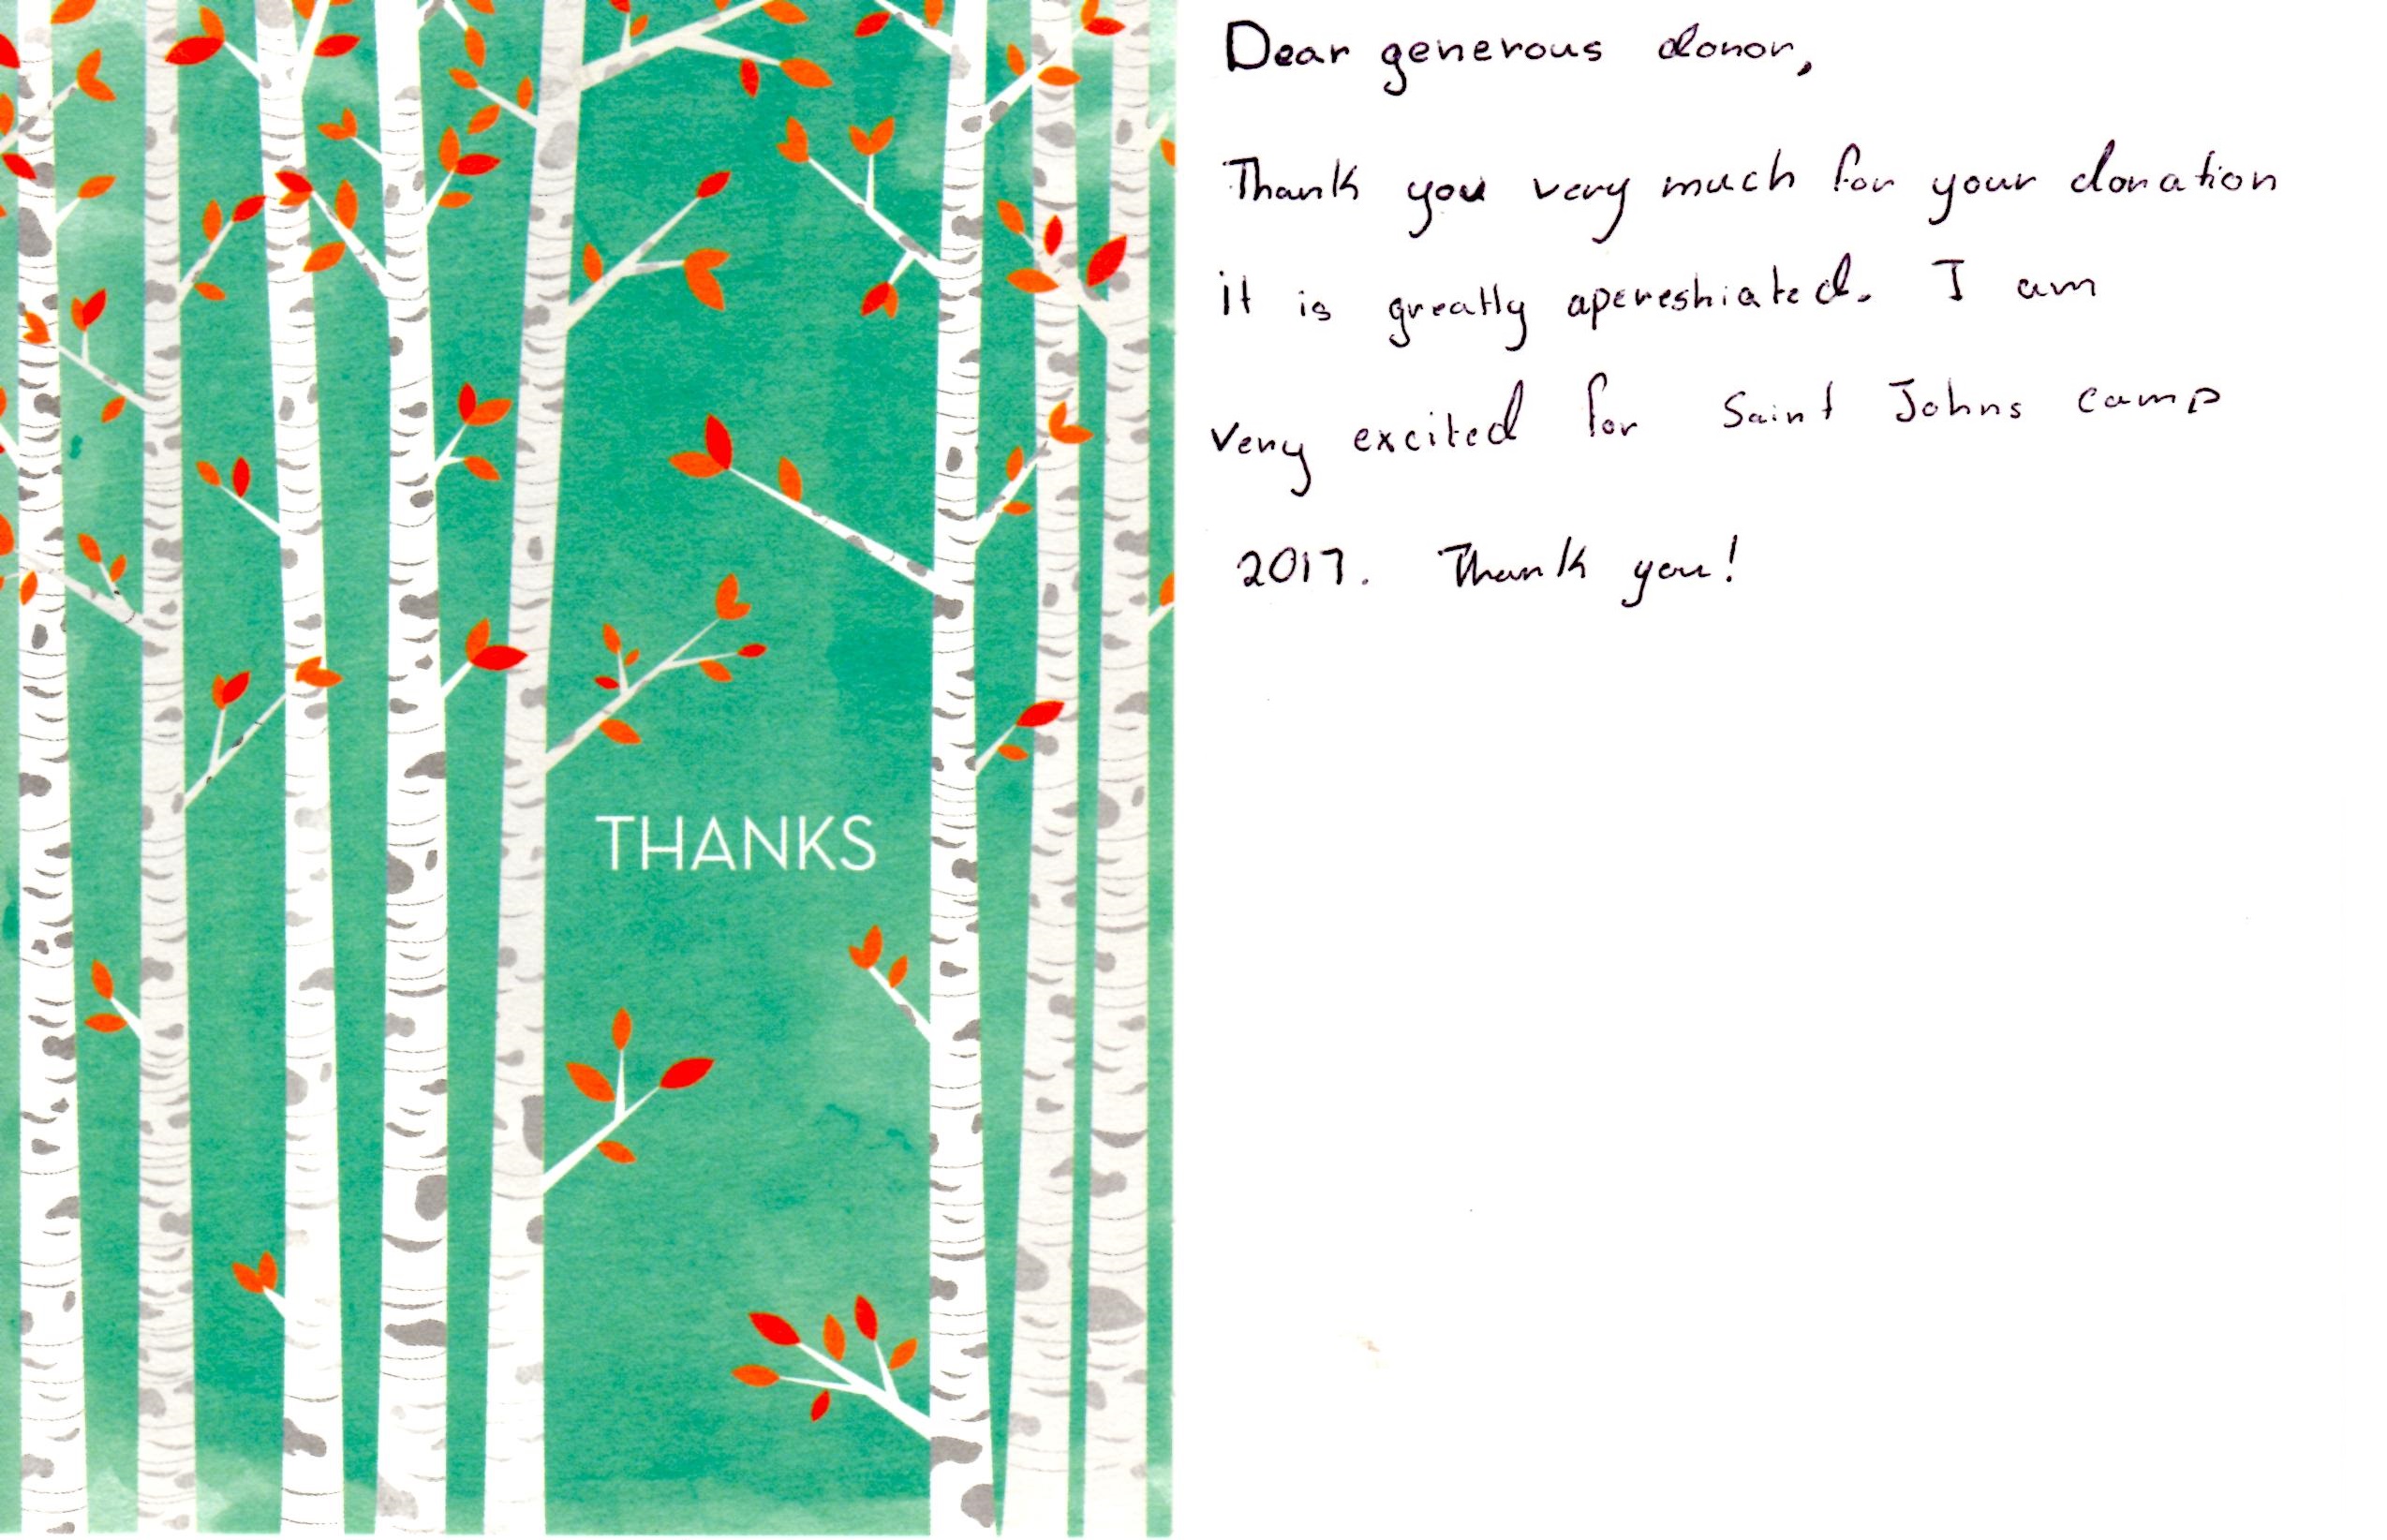 THANKS
Dear generous donor,
Thank you very much for your donation
it is greatly apereshiated. I am
very excited for Saint Johns camp
2017. Thank you!